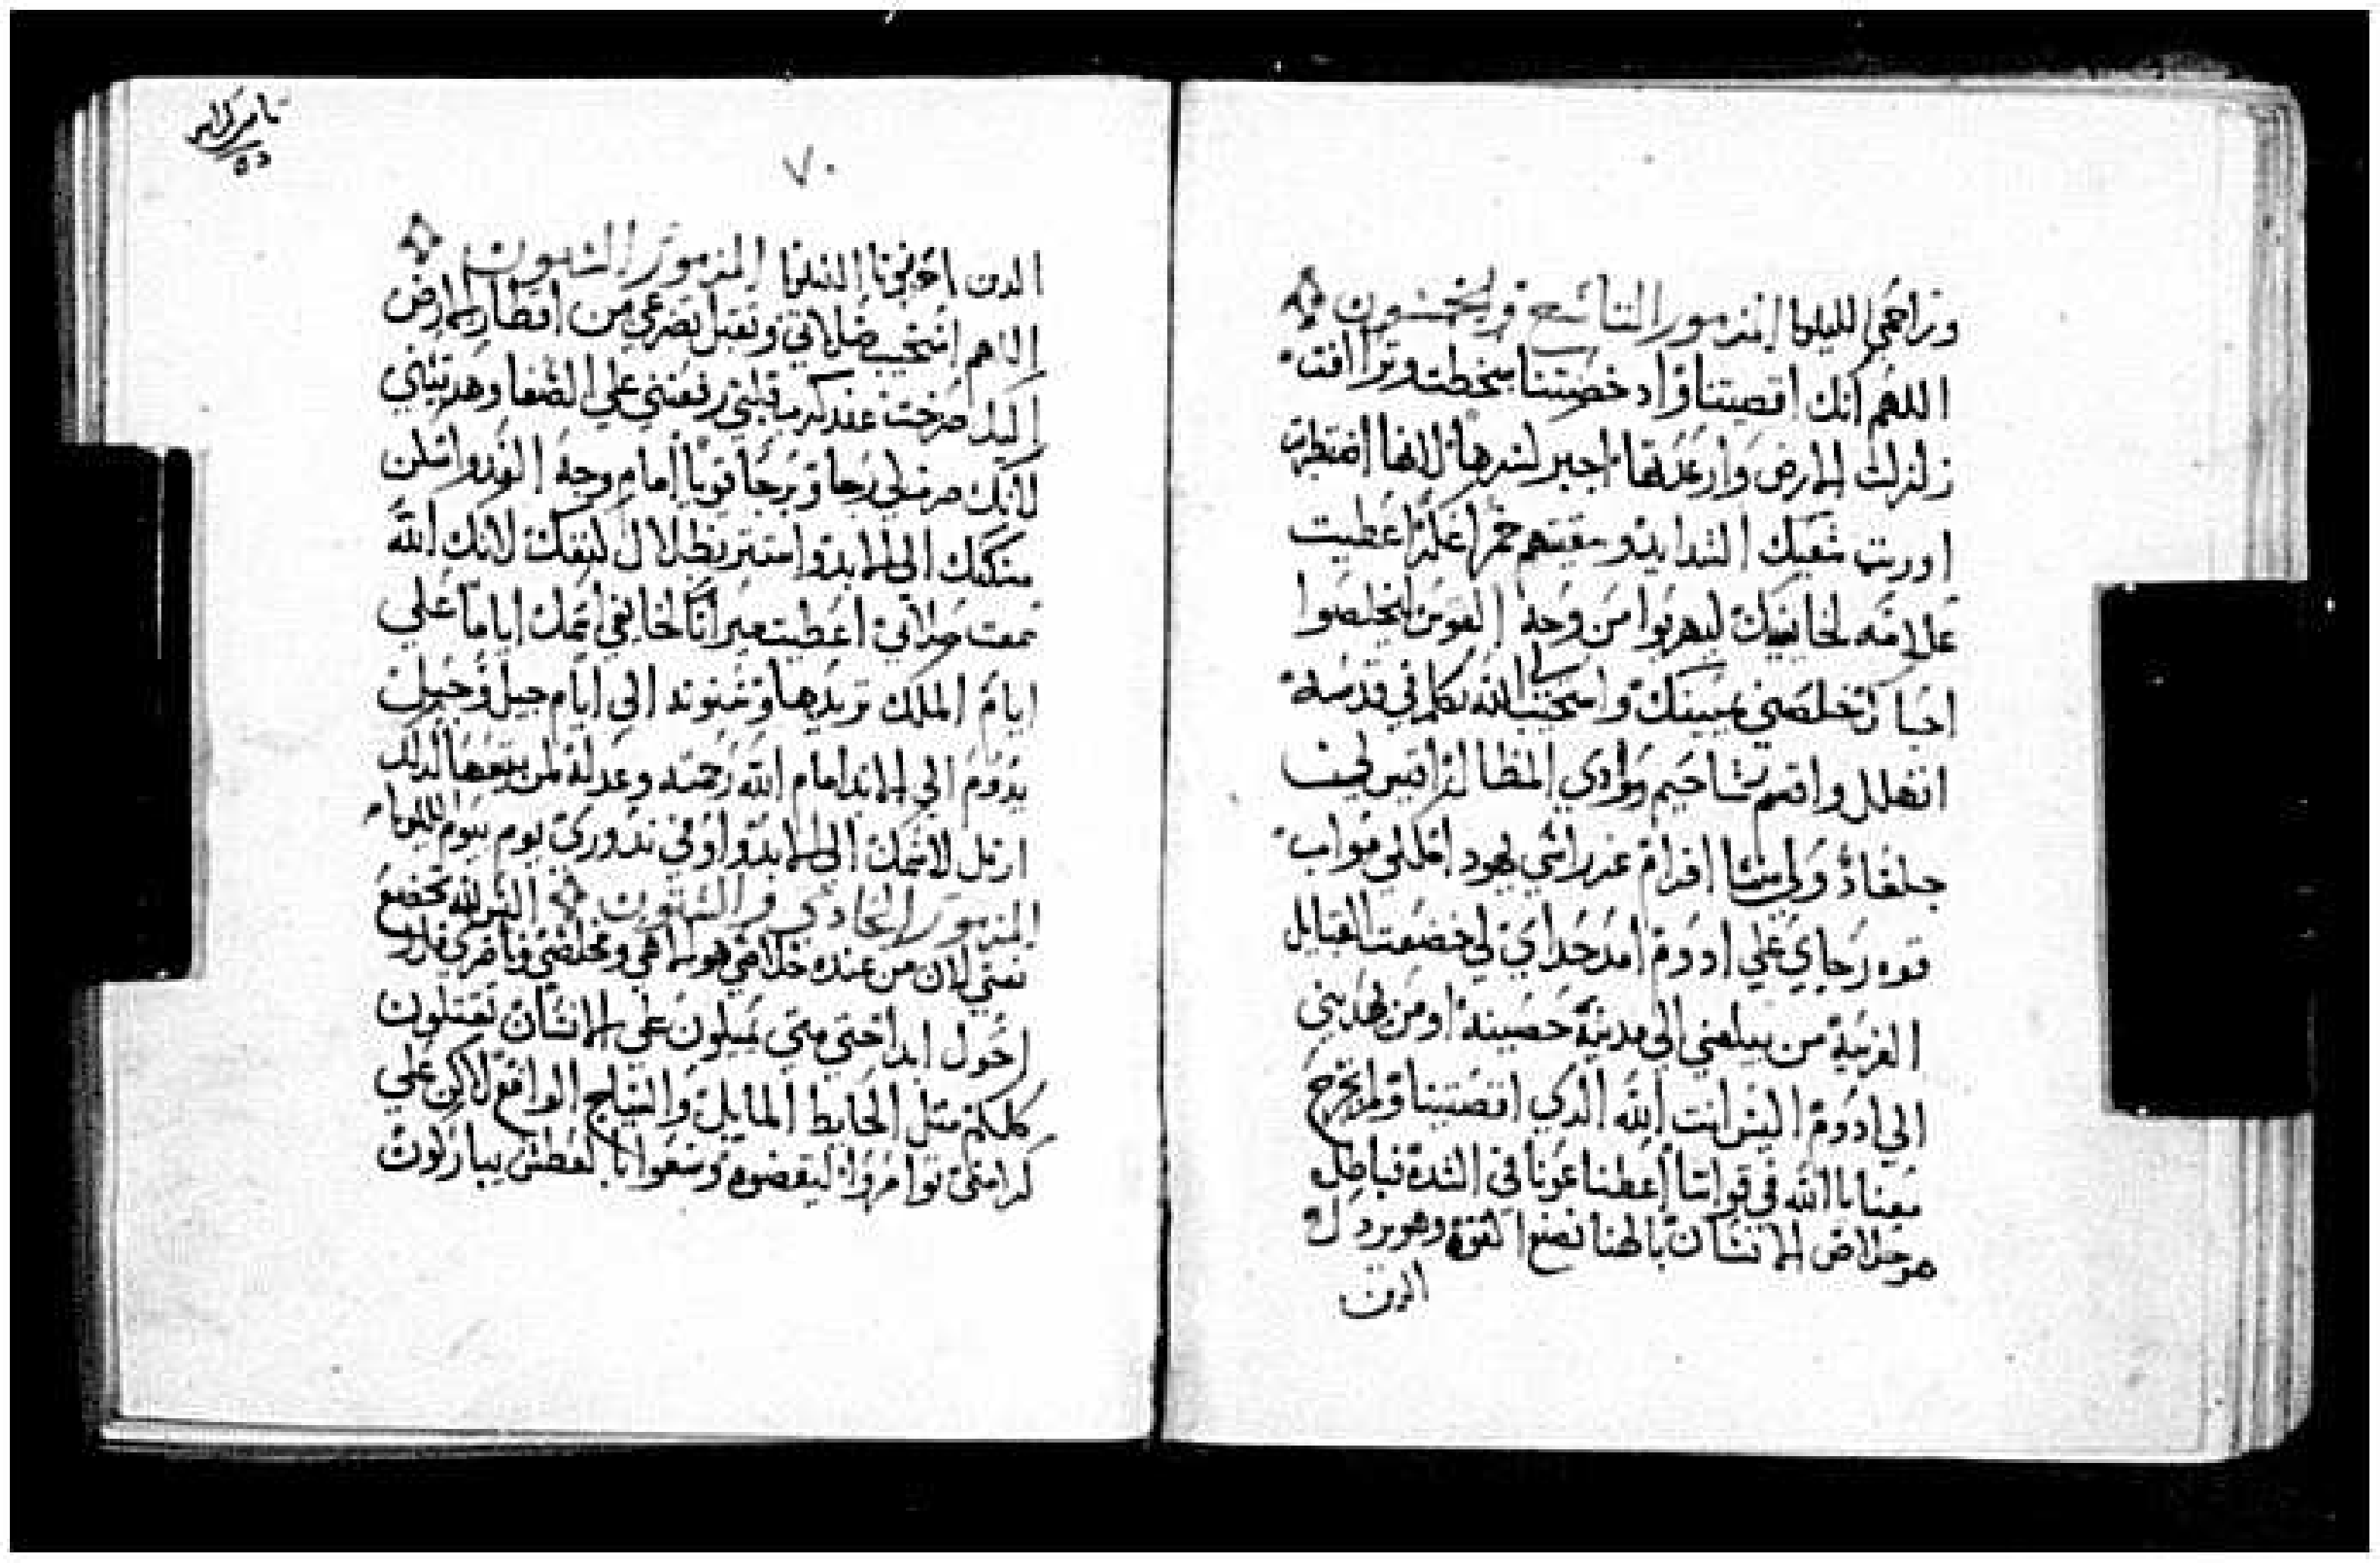 وراحمي الليلويا المزمور التاسع والخمسون
اللهم انك اقصيتنا واد خضتنا سخطت وتراافت
زلزلت الارض وارعدتها اجبر كسرها لانها اضطربت
اوريت شعبك الشدايد وسقيتهم خمرا اعطيت
علامه لخايفيك ليهربوا من وجه القوس ليخلصوا
احباك خلصني بيمينك واستجيب الله تكلم في قدسه
اتهلل واقسم شاحيم ووادي المظال اقيس لي هو
جلعاد ولي منسا افرام عز راسي يهودا ملكي مواب
قدر رجاي علي ادوم امد حداي لي خضعت القبايل
الغريبة من يبلغني الي مدينة حصينة اومن يهديني
الي ادوم اليس انت الله الذي اقصيتنا ولم تخرج
معنا يا الله في قواتنا اعطنا عونا في الشدة فباطل
هو خلاص الانسان بالهنا نصنع القوة وهو يرذل
الذين
٧٠
الذين احزنونا الليلويا المزمور الستون
اللهم استجيب صلاتي وتقبل تضرعي من اقطار الارض
اليك صرخت عند كرب قلبي رفعتني علي الصفا وهديتني
لانك صرت لي رجا وبرجا قويا امام وجه العدو اسكن
مسكنك الي الابد واستتر بظلال كنفك لانك الله
سمعت صلاتي اعطيت ميراثا لخايفي اسمك اياما علي
ايام الملك تزيدها وسنونه الي ايام جيل وجيل
يدوم الي الابد امام الله رحمته وعدله لمن يبتغيها كذلك
ارتل لاسمك الي الابد واوفي ندوري يوم بيوم الليلويا
المزمور الحادي والستون اليس لله تخضع
نفسي لان من عنده خلاصي هو الاهي ومخلصي وناصري فلا
احول ابدا حتي متي تميلون علي الانسان تقتلون
كلكم مثل الحايط المايل والسياج الواقع لاكن علي
كرامتي توامروا ليقصوه وسعوا بالعطش يباركون